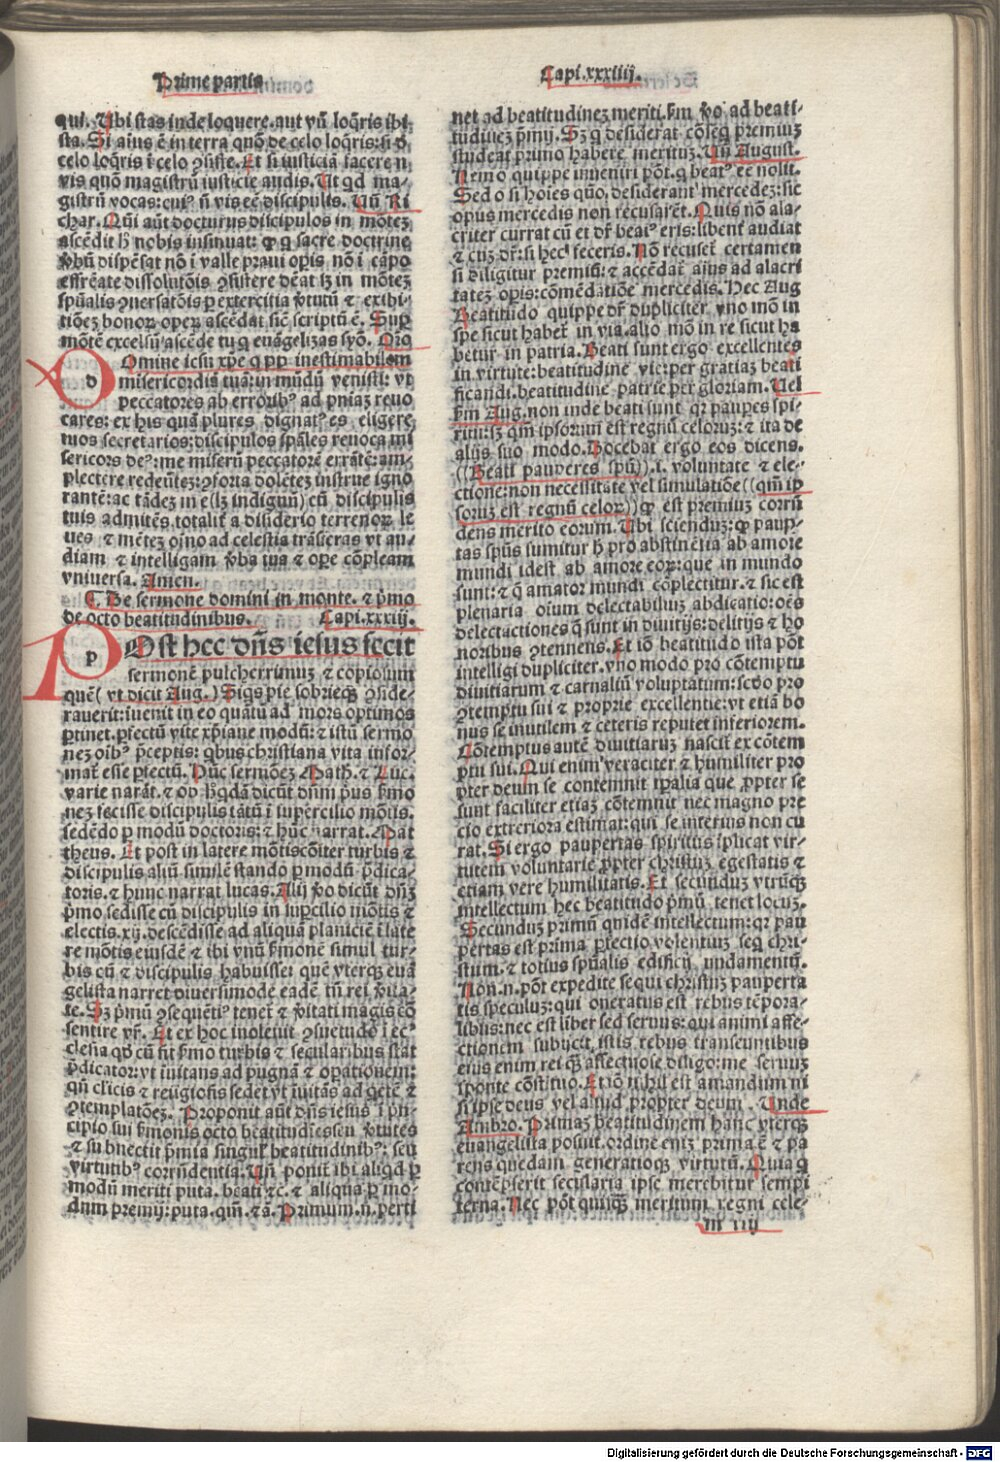 Prime partis
Capi.xxxiiij.
qui. Ubi stas inde loquere. aut vñ loq̃ris ibi
sta. Si aius ē in terra quō de celo loq̃ris: si d̓
celo loq̃ris ī celo ꝯsiste. Et si iusticiā facere n̄
vis quō magistrū iusticie audis. Ut qd ma⸗
gistrū vocas: cui⁹ ñ vis eē discipulis. Uñ Ri
char. Qñi aūt docturus discipulos in mōteꝫ
ascēdit h̓ nobis insinuat: ꝙ q̇ sacre doctrine
ꝟbū dispēsat nō ī valle praui oꝑis nō ī cāpo
effrēate dissolutōis ꝯsistere dēat sꝫ in mōteꝫ
spūalis ꝯuersatōis ꝑ exercitia ꝟtutū ⁊ exibi⸗
tiōeꝫ bonoꝝ operꝝ ascēdat sic̄ scriptū ē. Supͬ
mōtē excelsū ascēde tu q̇ euāgelizas syō. Orō
Omine iesu xp̄e q̇ ꝓp inestimabilem
misericordiā tuā: in mūdū venisti: vt
peccatores ab errorib⁹ ad pn̄iaꝫ reuo
cares: ex his quā plures dignat⁹ es eligere
tuos secretarios: discipulos sp̄ales reuoca mi
sericors de⁹: me miserū peccatorē errātē: am⸗
plectere redeūteꝫ: ꝯforta dolēteꝫ instrue igno
rantē: ac tādeꝫ m e(lꝫ indignū) cū discipulis
tuis admitēs. totalit̓ a disiderio terrenoꝝ le
ues ⁊ mēteꝫ oīno ad celestia trāsferas vt au⸗
diam ⁊ intelligam ꝟba tua ⁊ ope cōpleam
vniuersa. Amen.
⸿ De sermone domini in monte. ⁊ p̓mo
de octo beatitudinibus. Capi.xxxiij.
POst hec dn̄s iesus fecit
sermonē pulcherrimuꝫ ⁊ copiosum
quē( vt dicit Aug.) Siqs pie sobrieqꝫ ꝯside⸗
rauerit: iuenit in eo quātū ad mors optimos
ꝑtinet. ꝑfectū vite xp̄iane modū: ⁊ istū sermo
neꝫ oib⁹ p̄ceptis: qbus christiana vita infor⸗
mat̓ esse ꝑfectū. Hūc sermōeꝫ Math. ⁊ Luc.
varie narāt. ⁊ ob hͦ qdā dicūt dn̄m pͥus ẜmo
neꝫ fecisse discipulis tātū ī supercilio mōtis.
sedēdo ꝑ modū doctoris: ⁊ hūc narrat. Mat
theus. Et post in latere mōtis cōiter turbis ⁊
discipulis aliū similē stando ꝑ modū p̄dica⸗
toris. ⁊ hunc narrat lucas. Alij ꝟo dicūt dn̄ꝫ
pͥmo sedisse cū discipulis in suꝑcilio mōtis ⁊
electis. xij. descēdisse ad aliquā planiciē ī late
re mōtis eiusdē ⁊ ibi vnū ẜmonē simul tur⸗
bis cū ⁊ discipulis habuisse: quē vterqꝫ euā
gelista narret diuersimode eadē tn̄ rei ꝟita⸗
te. Sꝫ pͥmū ꝯsequēti⁹ tenet̓ ⁊ ꝟitati magis cō
sentire vr̄. Et ex hoc inoleuit ꝯsuetudo ī ec⸗
clesia qꝺ cū fit ẜmo turbis ⁊ secularibus stat
p̄dicator: vt īuitans ad pugnā ⁊ oꝑationem:
qn̄ cl̓icis ⁊ religiosis sedet vt īuitās ad qetē ⁊
ꝯtemplatōeꝫ. Proponit aūt dn̄s iesus ī pn̄⸗
cipio sui ẜmonis octo beatitudines seu ꝟtutes
⁊ subnectit p̄mia singul̓ beatitudinib⁹: seu
virtutib⁹ corrn̄dentia. Uñ ponit ibi aliqd ꝑ
modū meriti puta. beati ⁊c̄. ⁊ aliqua ꝑ mo⸗
dum premij: puta. qm̄. ⁊ā. Primum. n. perti
net ad beatitudineꝫ meriti. ẜm ꝟo ad beati⸗
tudineꝫ p̄mij. Sꝫ q̇ desiderat cōseq̄ premiuꝫ
studeat primo habere merituꝫ. Uñ August.
Nemo quippe inueniri pōt. q̇ beat⁹ eē nolit.
Sed o si hoīes quō. desiderant mercedeꝫ: sic
opus mercedis non recusarēt. Quis nō ala⸗
criter currat cū et dr̄ beat⁹ eris: libent̓ audiat
⁊ cuꝫ dr̄: si hec feceris. Nō recuset̓ certamen
si diligitur premiū: ⁊ accēdat̓ aius ad alacri
tateꝫ oꝑis: cōmēdatiōe mercedis. Hec Aug
Beatitudo quippe dr̄ dupliciter. vno mō in
spe sicut habet̓ in via. alio mō in re sicut ha
betur in patria. Beati sunt ergo excellentes
in virtute: beatitudine vie: per gratiaꝫ beati
ficandi. beatitudine patrie per gloriam. Uel
ẜm Aug. non inde beati sunt qꝛ pauꝑes spi⸗
ritu: sꝫ qm̄ ipsorum est regnū celoruꝫ: ⁊ ita de
alijs suo modo. Docebat ergo eos dicens.
((Beati pauperes spū)). i. voluntate ⁊ ele⸗
ctione: non necessitate vel simulatiōe((qm̄ ip
soruꝫ est regnū celoꝝ)) qꝺ est premiuꝫ corrn̄
dens merito eorum. Ubi sciendum: ꝙ pauꝑ⸗
tas spūs sumitur h̓ pro abstinētia ab amore
mundi idest ab amore eoꝝ: que in mundo
sunt: ⁊ q̄ amator mundi cōplectitur. ⁊ sic est
plenaria oium delectabiliuꝫ abdicatio: oēs
delectactiones q̄ sunt in diuitijs: delitijs ⁊ ho
noribus ꝯtennens. Et iō beatitudo ista pōt
intelligi dupliciter. vno modo pro cōtemptu
diuitiarum ⁊ carnaliū voluptatum: scd̓o pro
ꝯtemptu sui ⁊ proprie excellentie: vt etiā bo
nus se inutilem ⁊ ceteris reputet inferiorem.
Cōtemptus autē diuitiaruꝫ nascit̓ ex cōtem
ptu sui. Qui enim veraciter ⁊ humiliter pro
pter deum se contemnit tꝑalia que ꝓpter se
sunt faciliter etiaꝫ cōtemnit nec magno pre
cio extreriora estimat: qui se interius non cu
rat. Si ergo paupertas spiritus īplicat vir⸗
tutem voluntarie ꝓpter christuꝫ egestatis ⁊
etiam vere humilitatis. Et secunduꝫ vtrūqꝫ
intellectum hec beatitudo pͥmū tenet locuꝫ.
Secunduꝫ primū quidē intellectum: qꝛ pau
pertas est prima ꝑfectio volentiuꝫ seq̄ chri⸗
stum. ⁊ totius spūalis edificij undamentū.
Non. n. pōt expedite sequi christuꝫ pauperta
tis speculuꝫ: qui oneratus est rebus tēpora⸗
libus: nec est liber sed seruus: qui animi affe⸗
ctionem subijcit istis rebus transeuntibus
eius enim rei q̄ꝫ affectuose diligo: me seruuꝫ
sponte cōstituo. Et iō nihil est amandum ni
si ipse deus vel aliud propter deum. Unde
Ambro. Primaꝫ beatitudinem hanc vterqꝫ
euangelista posuit. ordine eniꝫ prima ē ⁊ pa
rens quedam generatioqꝫ virtutū. Quia q̇
contēpserit secularia ipse merebitur sempi
terna. Nec pōt quisqꝫ meritum regni cele⸗
m iij
Digitalisierung gefördert durch die Deutsche Forschungsgemeinschaft - DFG